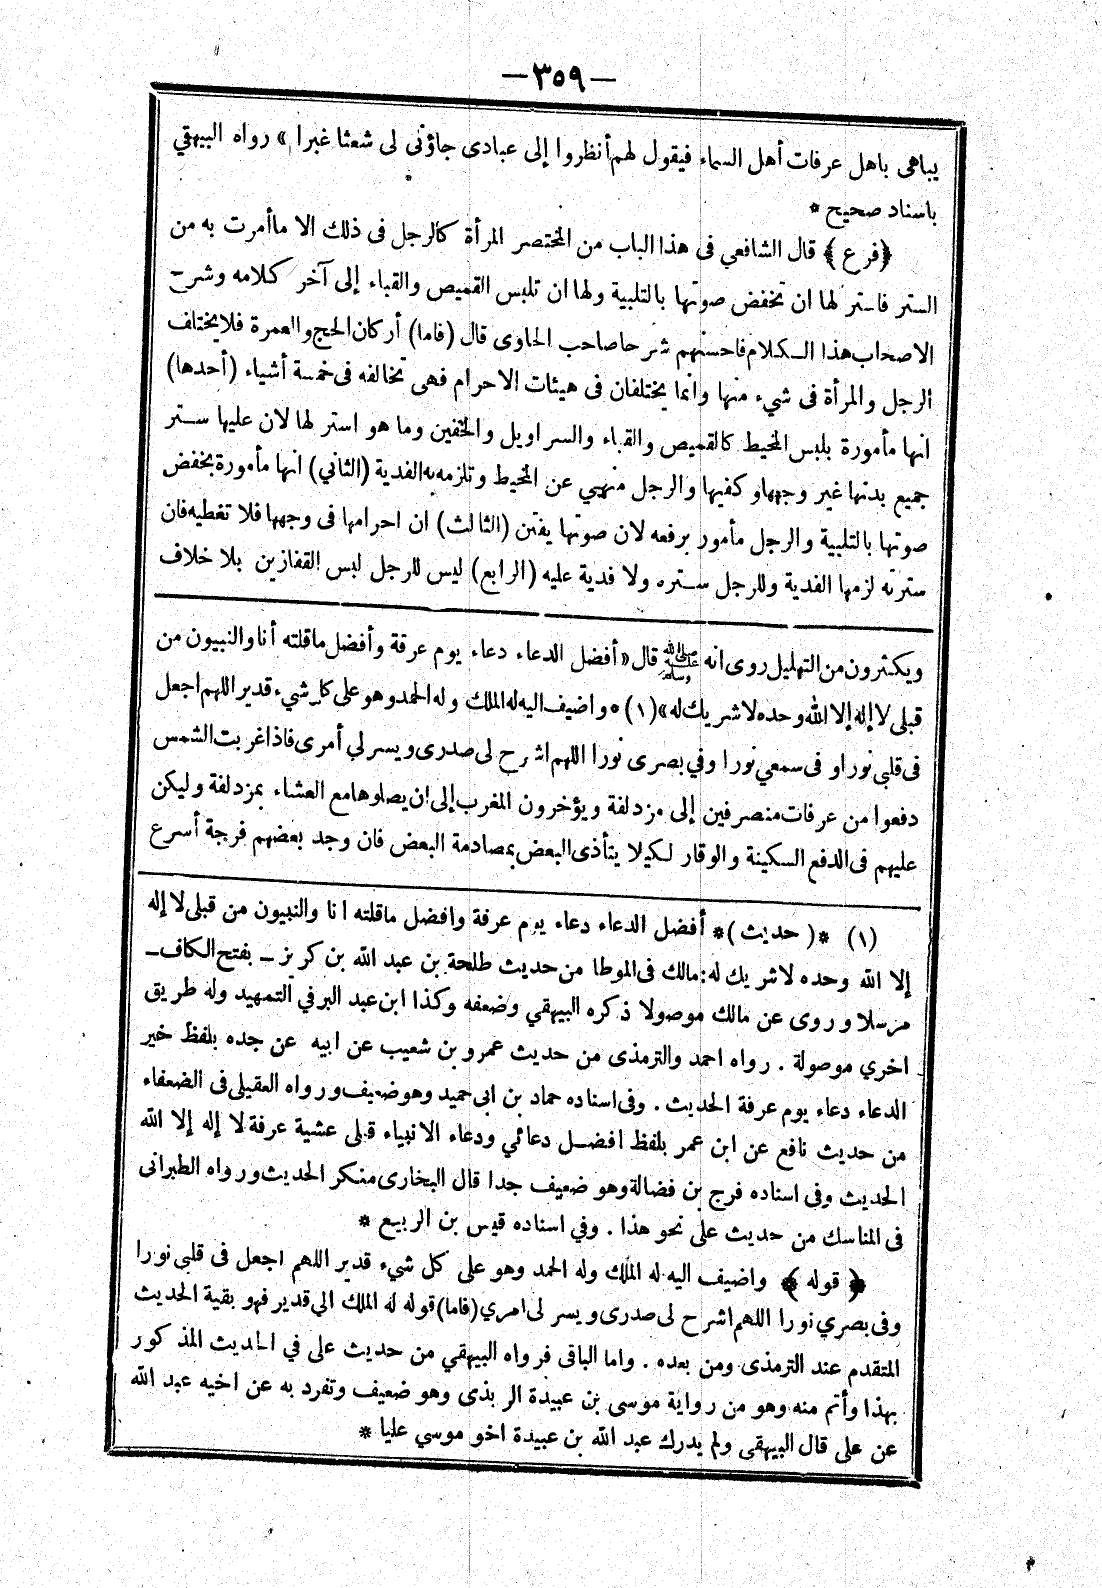 — ٣٥٩ —
يباهى باهل عرفات أهل السماء فيقول لهم أنظروا إلى عبادى جاؤنى لى شعثا غبرا » رواه البيهقي
باسناد صحيح *
﴿فرع﴾ قال الشافعي فى هذا الباب من المختصر المرأة كالرجل فى ذلك الا ماأمرت به من
الستر فاستر لها ان تخفض صوتها بالتلبية ولها ان تلبس القميص والقباء إلى آخر كلامه وشرح
الاصحاب هذا الكلام فاحسنهم شرحا صاحب الحاوى قال (فاما) أركان الحج والعمرة فلا يختلف
الرجل والمرأة فى شيء منها وانما يختلفان فى هيئات الاحرام فهى تخالفه فى خمسة أشياء (أحدها)
انها مأمورة بلبس المخيط كالقميص والقباء والسراويل والخفين وما هو استر لها لان عليها ستر
جميع بدنها غير وجهها وكفيها والرجل منهي عن المخيط وتلزمه به الفدية (الثاني) انها مأمورة بخفض
صوتها بالتلبية والرجل مأمور برفعه لان صوتها يفتن (الثالث) ان احرامها فى وجهها فلا تغطيه فان
سترته لزمها الفدية وللرجل ستره ولا فدية عليه (الرابع) ليس للرجل لبس القفازين بلا خلاف
ويكثرون من التهليل روى انه ﷺ قال « أفضل الدعاء دعاء يوم عرفة وأفضل ماقلته أنا والنبيون من
قبلى لا إله إلا الله وحده لا شريك له » (١) * واضيف اليه له الملك وله الحمد وهو على كل شيء قدير اللهم اجعل
فى قلبى نورا وفى سمعي نورا وفي بصرى نورا اللهم اشرح لى صدرى ويسر لي أمرى فاذا غربت الشمس
دفعوا من عرفات منصرفين إلى مزدلفة ويؤخرون المغرب إلى ان يصلوها مع العشاء بمزدلفة وليكن
عليهم فى الدفع السكينة والوقار لكيلا يتأذى البعض بمصادمة البعض فان وجد بعضهم فرجة أسرع
(١) *( حديث )* أفضل الدعاء دعاء يوم عرفة وافضل ماقلته انا والنبيون من قبلى لا إله
إلا الله وحده لا شريك له: مالك فى الموطا من حديث طلحة بن عبد الله بن كريز – بفتح الكاف –
مرسلا وروى عن مالك موصولا ذكره البيهقي وضعفه وكذا ابن عبد البر في التمهيد وله طريق
اخري موصولة . رواه احمد والترمذى من حديث عمرو بن شعيب عن ابيه عن جده بلفظ خير
الدعاء دعاء يوم عرفة الحديث . وفى اسناده حماد بن ابى حميد وهو ضعيف ورواه العقيلى فى الضعفاء
من حديث نافع عن ابن عمر بلفظ افضل دعائي ودعاء الانبياء قبلى عشية عرفة لا إله إلا الله
الحديث وفى اسناده فرج بن فضالة وهو ضعيف جدا قال البخارى منكر الحديث ورواه الطبرانى
فى المناسك من حديث على نحو هذا . وفي اسناده قيس بن الربيع *
﴿ قوله ﴾ واضيف اليه له الملك وله الحمد وهو على كل شيء قدير اللهم اجعل فى قلبي نورا
وفى بصري نورا اللهم اشرح لى صدرى ويسر لى امري (فاما) قوله له الملك الي قدير فهو بقية الحديث
المتقدم عند الترمذى ومن بعده . واما الباقى فرواه البيهقي من حديث على في الحديث المذكور
بهذا وأتم منه وهو من رواية موسى بن عبيدة الربذى وهو ضعيف وتفرد به عن اخيه عبد الله
عن على قال البيهقى ولم يدرك عبد الله بن عبيدة اخو موسي عليا *